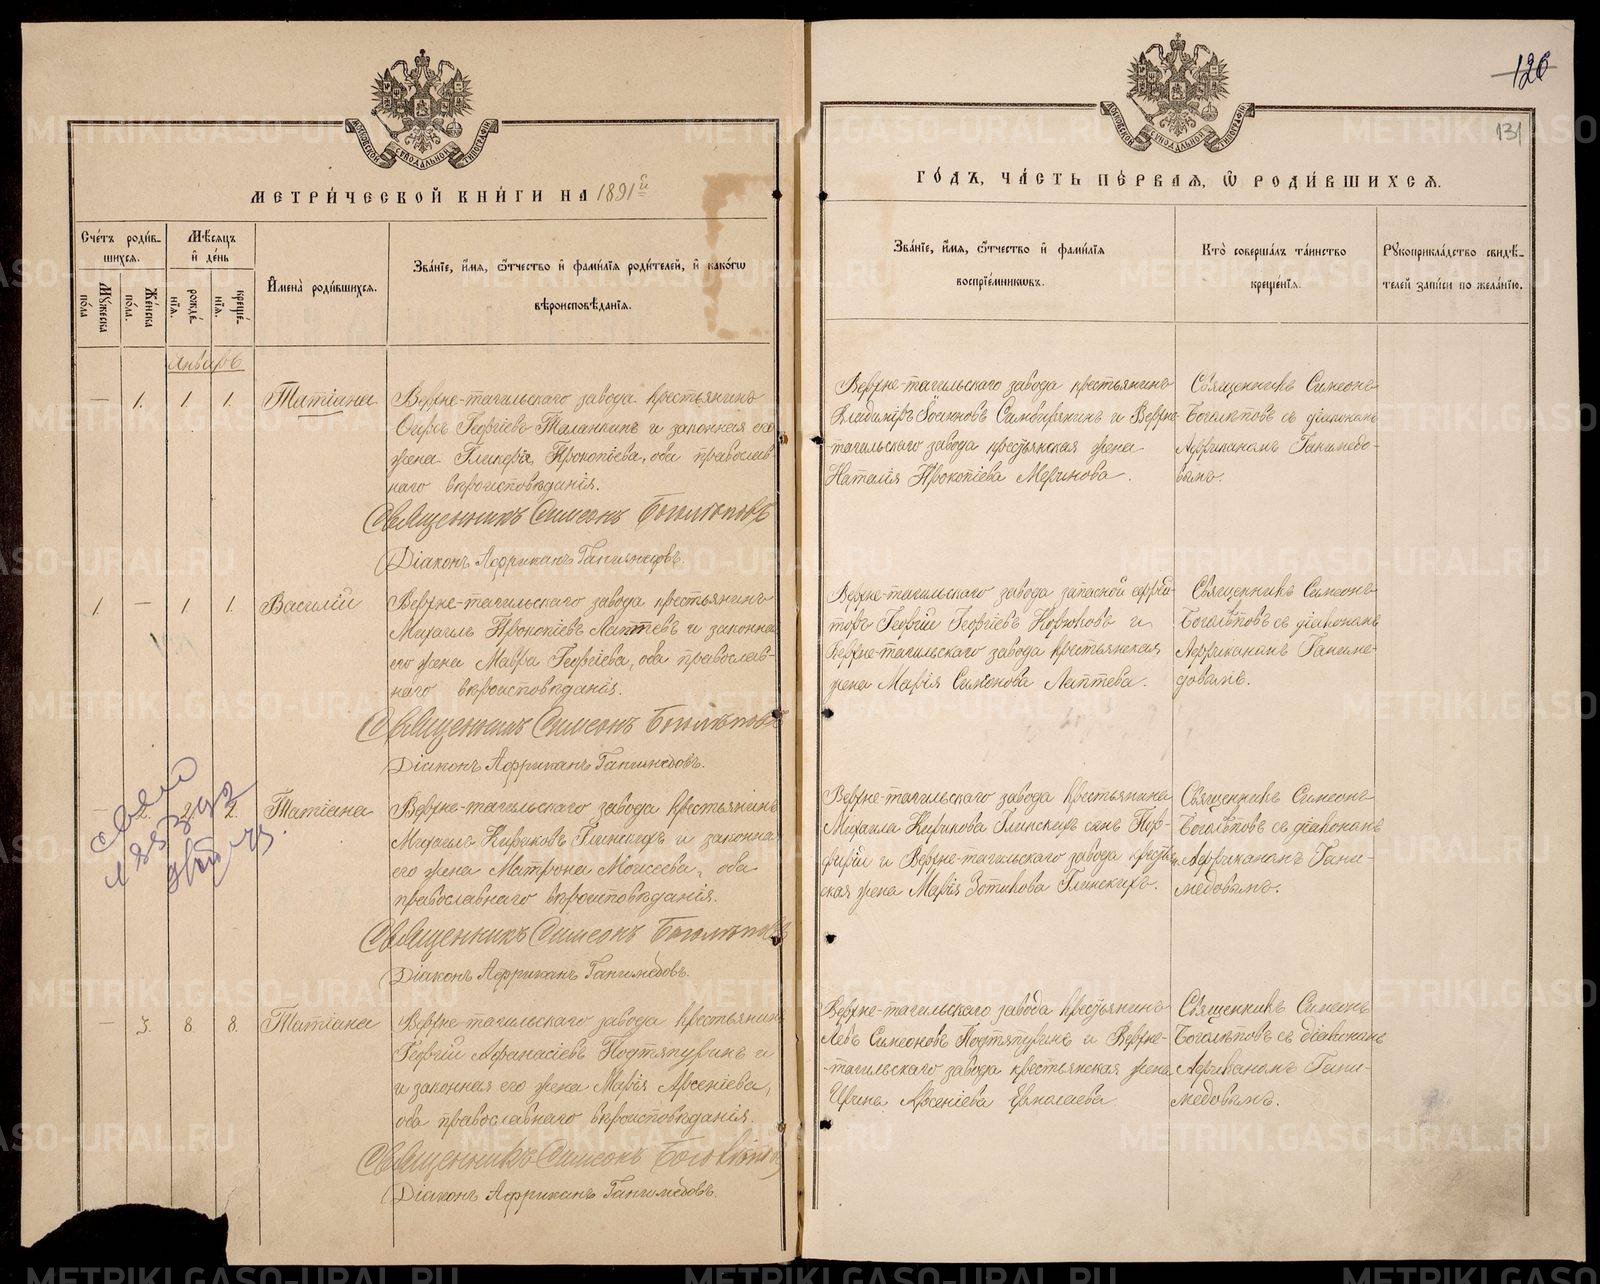 МЕТРИ́ЧЕСКОЙ КНИ́ГИ НА 1891й
Сче́тъ роди́в-
шихся.
Мѣ́сяцъ
и҆ де́нь
Мꙋ́жеска
по́ла
Же́нска
по́ла.
рожде́
нїѧ.
креще́-
нїѧ.
И҆мена̀ роди́вшихся.
Зва́нїе, и҆́мѧ, ѻ҆́тчество и҆ фами́лїѧ роди́телей, и҆ како́гѡ
вѣроисповѣ́данїѧ.
Январь
— 1. 1 1. Татіана
Верхне-тагильскаго завода крестьянинъ
Георгіевъ Таланкинъ и законная его
жена Гликерія Прокопіева, оба православ-
наго вѣроисповѣданія.
Священникъ Симеонъ Боголѣповъ
Діаконъ Африканъ Ганимедовъ.
1. — 1 1. Василій
Верхне-тагильскаго завода крестьянинъ
Михаилъ Прокопіевъ Лаптевъ и законная
его жена Мавра Георгіева, оба православ-
наго вѣроисповѣданія.
Священникъ Симеонъ Боголѣповъ
Діаконъ Африканъ Ганимедовъ.
— 2. 2. Татіана
Верхне-тагильскаго завода крестьянинъ
Михаилъ Кириковъ Глинскихъ и законная
его жена Матрона Моисеева, оба
православнаго вѣроисповѣданія.
Священникъ Симеонъ Боголѣповъ
Діаконъ Африканъ Ганимедовъ.
— 3. 8. 8. Татіана
Верхне-тагильскаго завода крестьянинъ
Георгій Афанасіевъ Подтяпуринъ и
и законная его жена Марія Арсеніева,
оба православнаго вѣроисповѣданія.
Священникъ Симеонъ Боголѣповъ
Діаконъ Африканъ Ганимедовъ.
126
131
ГО́ДЪ, ЧА́СТЬ ПЕ́РВАѦ, Ѿ РОДИ́ВШИХСѦ.
Зва́нїе, и҆́мѧ, ѻ҆́тчество и҆ фами́лїѧ
воспрїе́мникѡвъ.
Кто̀ соверша́лъ та́инство
креще́нїѧ.
Рꙋкоприкла́дство свидѣ́-
телей за́писи по жела́нїю.
Верхне-тагильскаго завода крестьянинъ
Владиміръ Іоанновъ Симбирякинъ и Верхне-
тагильскаго завода крестьянская жена
Наталія Прокопіева Меринова.
Священникъ Симеонъ
Боголѣповъ съ діакономъ
Африканомъ Ганимедо-
вымъ.
Верхне-тагильскаго завода запасной ефрей-
торъ Георгій Георгіевъ Корюковъ и
Верхне-тагильскаго завода крестьянская
жена Марія Симеонова Лаптева.
Священникъ Симеонъ
Боголѣповъ съ діакономъ
Африканомъ Ганиме-
довымъ.
Верхне-тагильскаго завода крестьянина
Михаила Кирикова Глинскихъ сынъ Пор-
фирій и Верхне-тагильскаго завода крестьян
ская жена Марія Зотикова Глинскихъ.
Священникъ Симеонъ
Боголѣповъ съ діакономъ
Африканомъ Гани-
медовымъ.
Верхне-тагильскаго завода крестьянинъ
Левъ Симеоновъ Подтяпуринъ и Верхне-
-тагильскаго завода крестьянская жена
Ирина Арсеніева Ермолаева
Священникъ Симеонъ
Боголѣповъ съ діакономъ
Африканомъ Гани-
медовымъ.